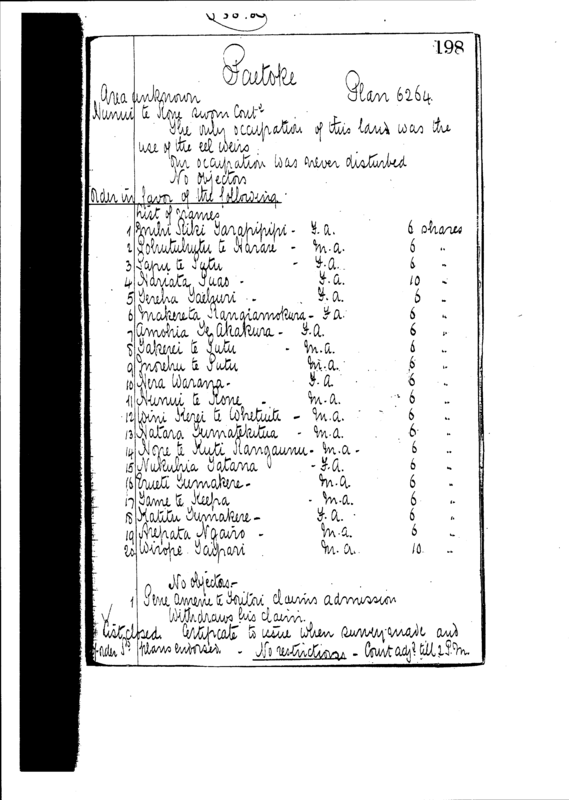 198
Paetoke
Area unknown Plan 6264.
Nunui te Kore sworn Court
The only occupation of this land was the
use of the eel weirs
Our occupation was never disturbed
No objectors
Order in favor of the following
List of names
1 Keiki Tarapipipi - F.a. 6 shares
2 Pohutuhutu te Harare - M.a. 6 "
3 Tapu te Tutu - F.a. 6 "
4 Hariata - F.a. 10 "
5 Tereha - F.a. 6 "
6 Makereta Rangiamokura - F.a. 6 "
7 Amohia Te Akakura - F.a. 6 "
8 Takerei te Tutu - M.a. 6 "
9 Morehu te Tutu M.a. 6 "
10 Hera Warana - F.a. 6 "
11 Nunui te Kore - M.a. 6 "
12 Wini Kerei te Whetuiti - M.a. 6 "
13 Hatara Tumatekutua - M.a. 6 "
14 Hore te Kuti Rangaunu - M.a. - 6 "
15 Nukuhia Tatana - F.a. 6 "
16 Erueti Tumakere - M.a. 6 "
17 Tame te Keepa - M.a. 6 "
18 Katitu Tumakere - F.a. 6 "
19 Arepata Ngairo - M.a. 6 "
20 Wirope M.a. 10 "
No objectors -
1 Pene te claims admission
Withdraws his claim.
List closed. Certificate to issue when survey made and
order plans endorsed. - No restrictions - Court adjd till 2 P.m.